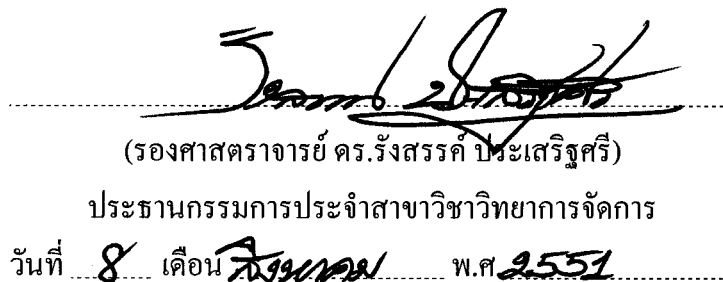 (รองศาสตราจารย์ ดร.รังสรรค์ ประเสริฐศรี)
ประธานกรรมการประจำสาขาวิชาวิทยาการจัดการ
วันที่ 8 เดือน สิงหาคม พ.ศ. 2551